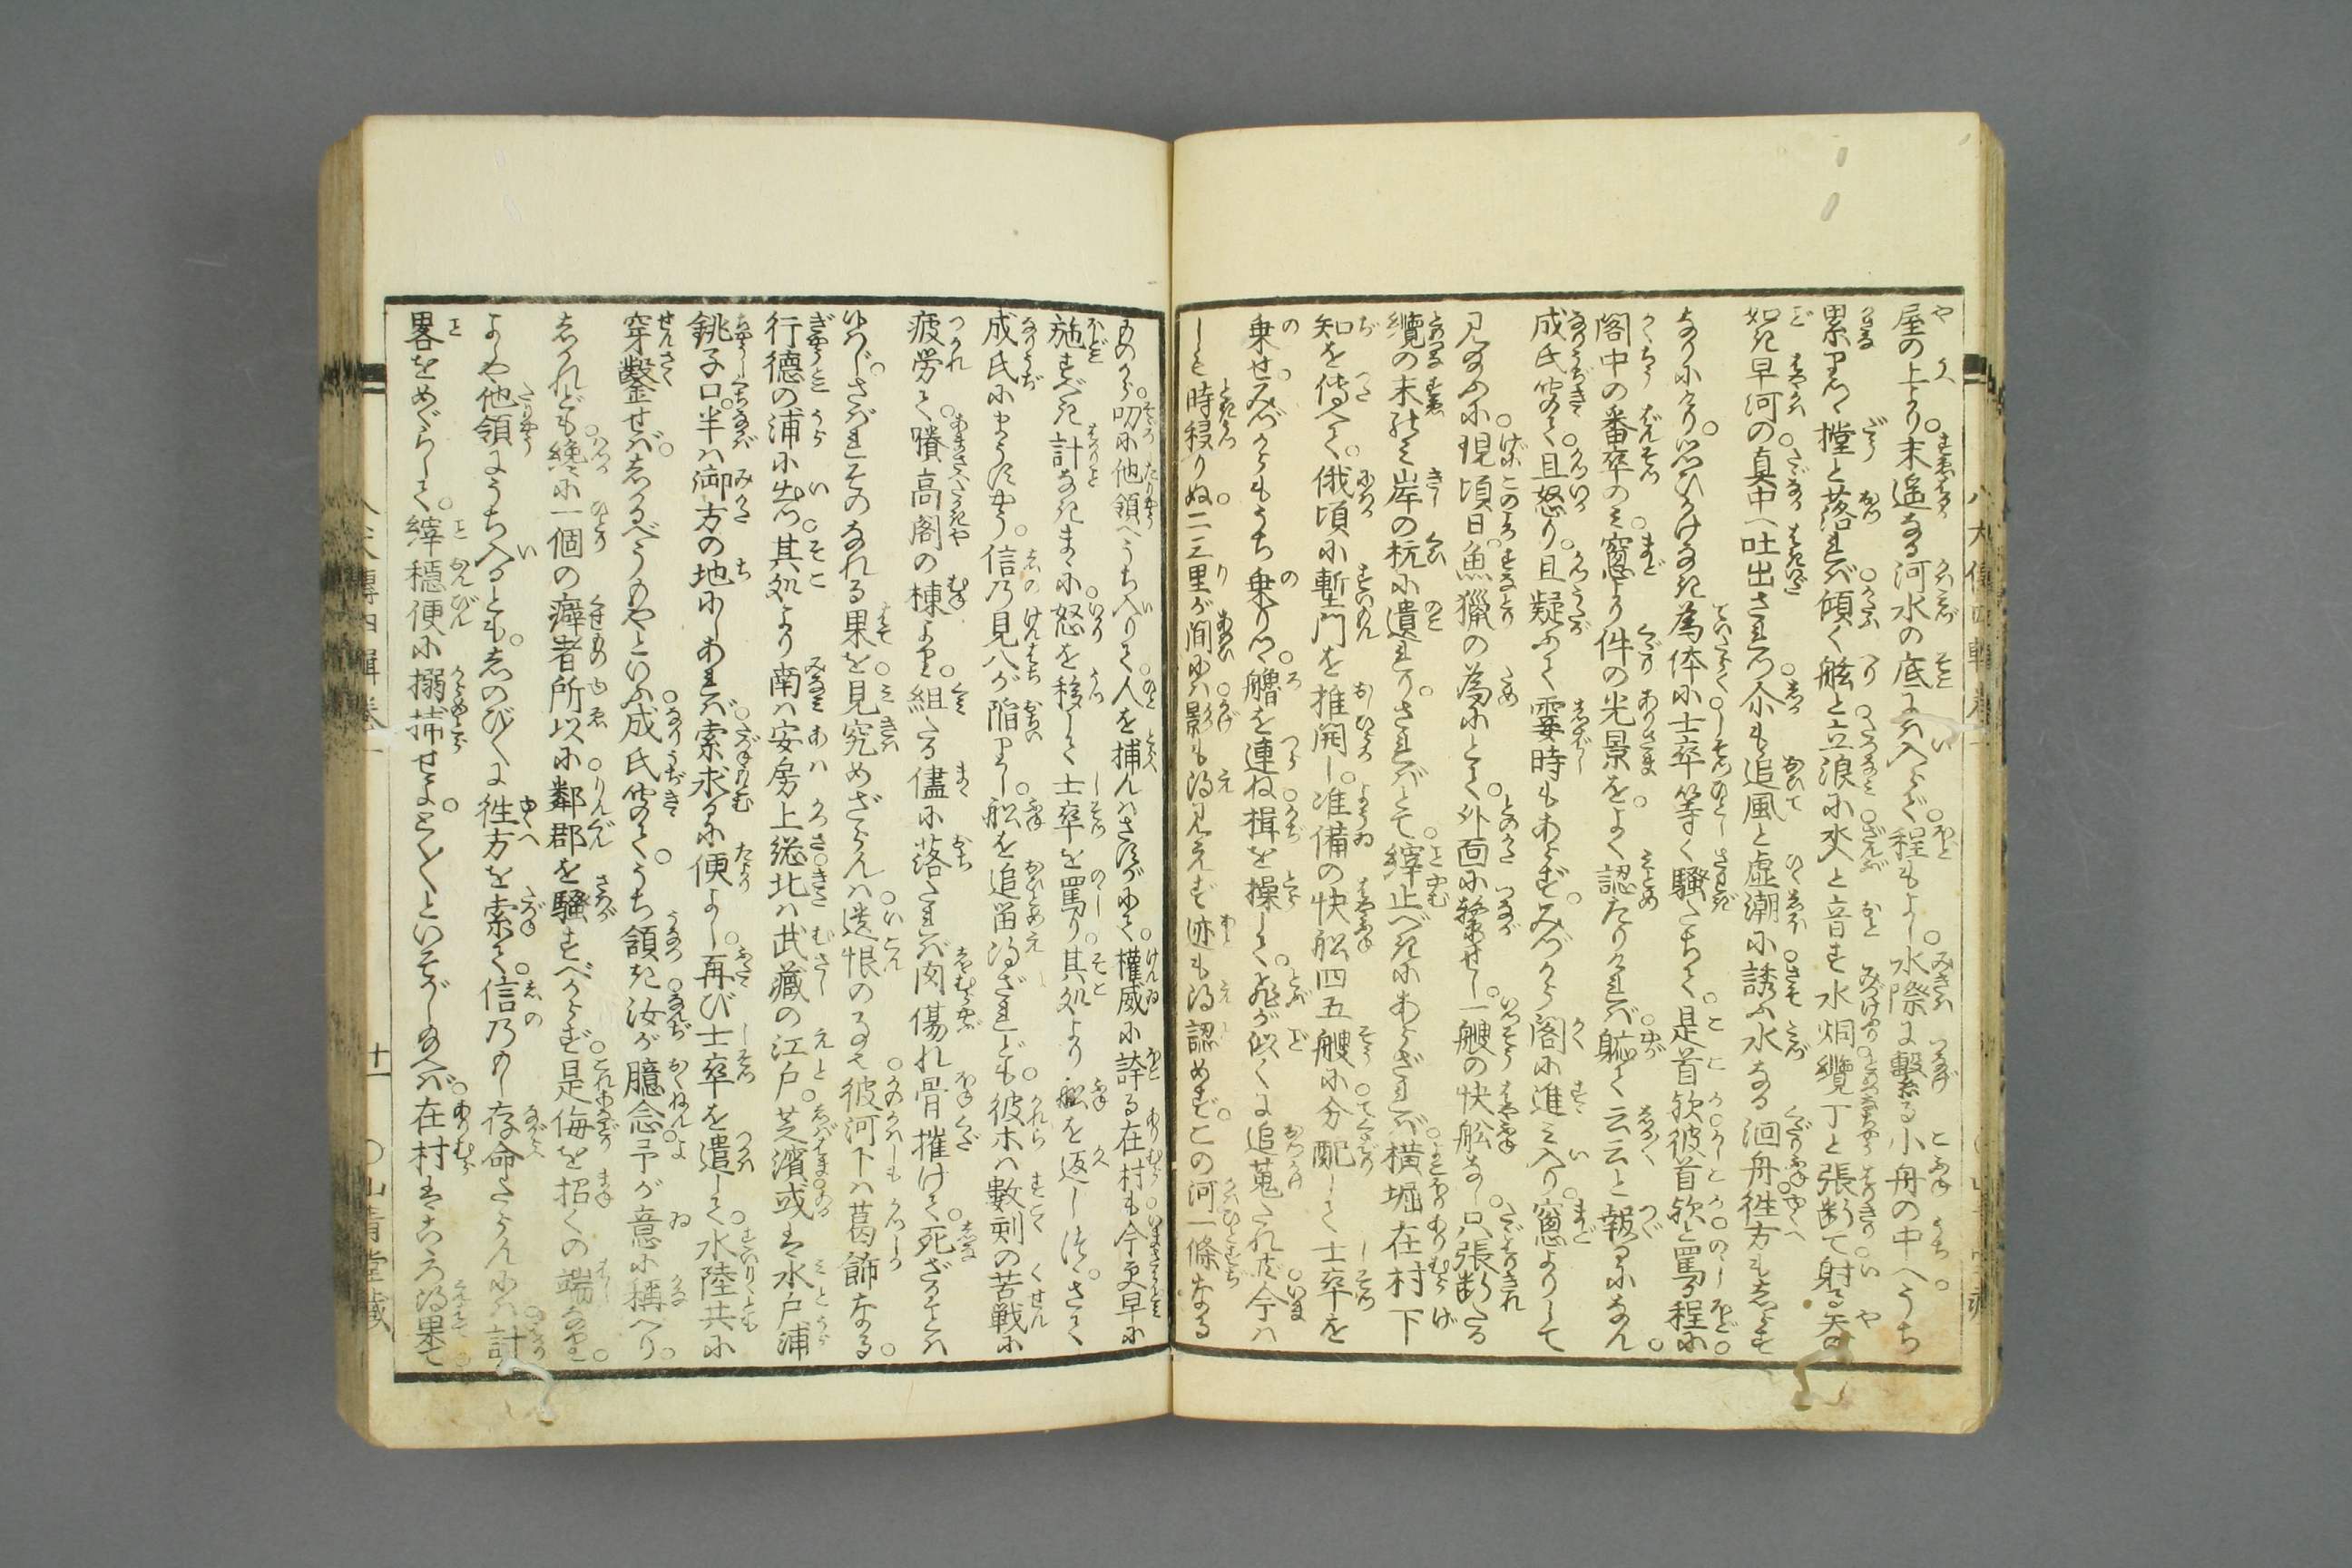 屋の上より。末遥なる河水の底には入らで。程もよし水際に繋る小舟の中へうち
累りつゝ撞と落れば傾く舷と立浪に氷と音す水烟纜丁と張断て射る矢の
如き早河の真中へ吐出されつ尓も追風と虚潮に誘ふ水なる洄舟徃方もしらず
なりにけり。思ひかけなき為体に士卒等は騒たちて。是首歟彼首歟と罵る程に
閣中の番卒のミ。窓より件の光景を。よく認たりければ躯て云云と報るになん。
成氏聞て。且怒り。且疑ふて霎時もあらず。みづから閣に進ミ入り。窓よりして
見給ふに現頃日。魚猟の為にとて。外面に繋せし。一艘の快舩なし。只張断たる
纜の末のミ岸の杭に遺れり。されバとて。縡止べきにあらざれバ横堀在村下
知を傳へて。俄頃に塹門を推開し。准備の快舩四五艘に分配して士卒を
乗せ。みづからもうち乗りつ。艪を連ね楫を操して。飛が似くに追蒐たれ共今ハ
しも時移りぬ。二三里が間にハ影も得見えず迹も得認めず。この河一條なる
ものから。叨に他領へうち入りて。人を捕んハさすがにて。權威に誇る在村も今更早に
施すべき計なきまゝに。怒を移して士卒を罵り。其処より舩を返しつ。さて
成氏にまうすやう。信乃見八が陥りし。舩を追畄得ざれども。彼等ハ數刻の苦戦に
疲労て剰高閣の棟より。組たる儘に落たれバ肉傷れ骨摧けて。死ざることハ
候はじ。さばれその なれる果を。見究めざらんハ遺恨のみ彼河下ハ葛飾なる。
行徳の浦に出。其処より南ハ安房上総北ハ武藏の江戸。芝濱或ハ水戸浦
銚子口。半ハ御方の地にしあれバ。索求るに便よし。再び士卒を遣して。水陸共に
穿鑿せバ。しかるべうもやといふ。成氏聞て。うち頷き。汝が臆念予が意に稱へり。
しかれども纔に一個の癖者所以に鄰郡を騒すべからず。是侮を招くの端なり。
よしや他領にうち入るとも。しのび〱に徃方を索て。信乃もし存命たらんにハ計
畧をめぐらして。縡穏便に搦捕せよ。とく〱といそがし給へバ。在村はこゝろ得果て
八犬傳四輯巻一
十一
〇山青堂藏